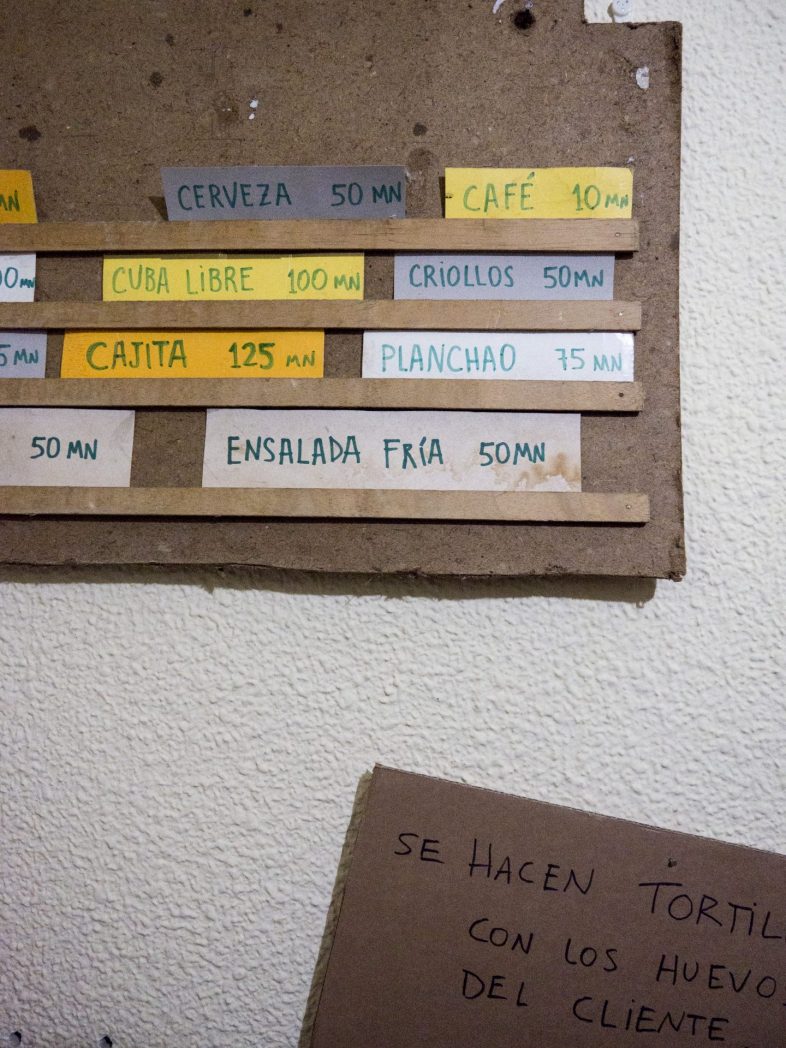 MN CERVEZA 50 MN CAFÉ 10 MN
00 MN CUBA LIBRE 100 MN CRIOLLOS 50 MN
5 MN CAJITA 125 MN PLANCHAO 75 MN
50 MN ENSALADA FRÍA 50 MN
SE HACEN TORTIL
CON LOS HUEVO
DEL CLIENTE